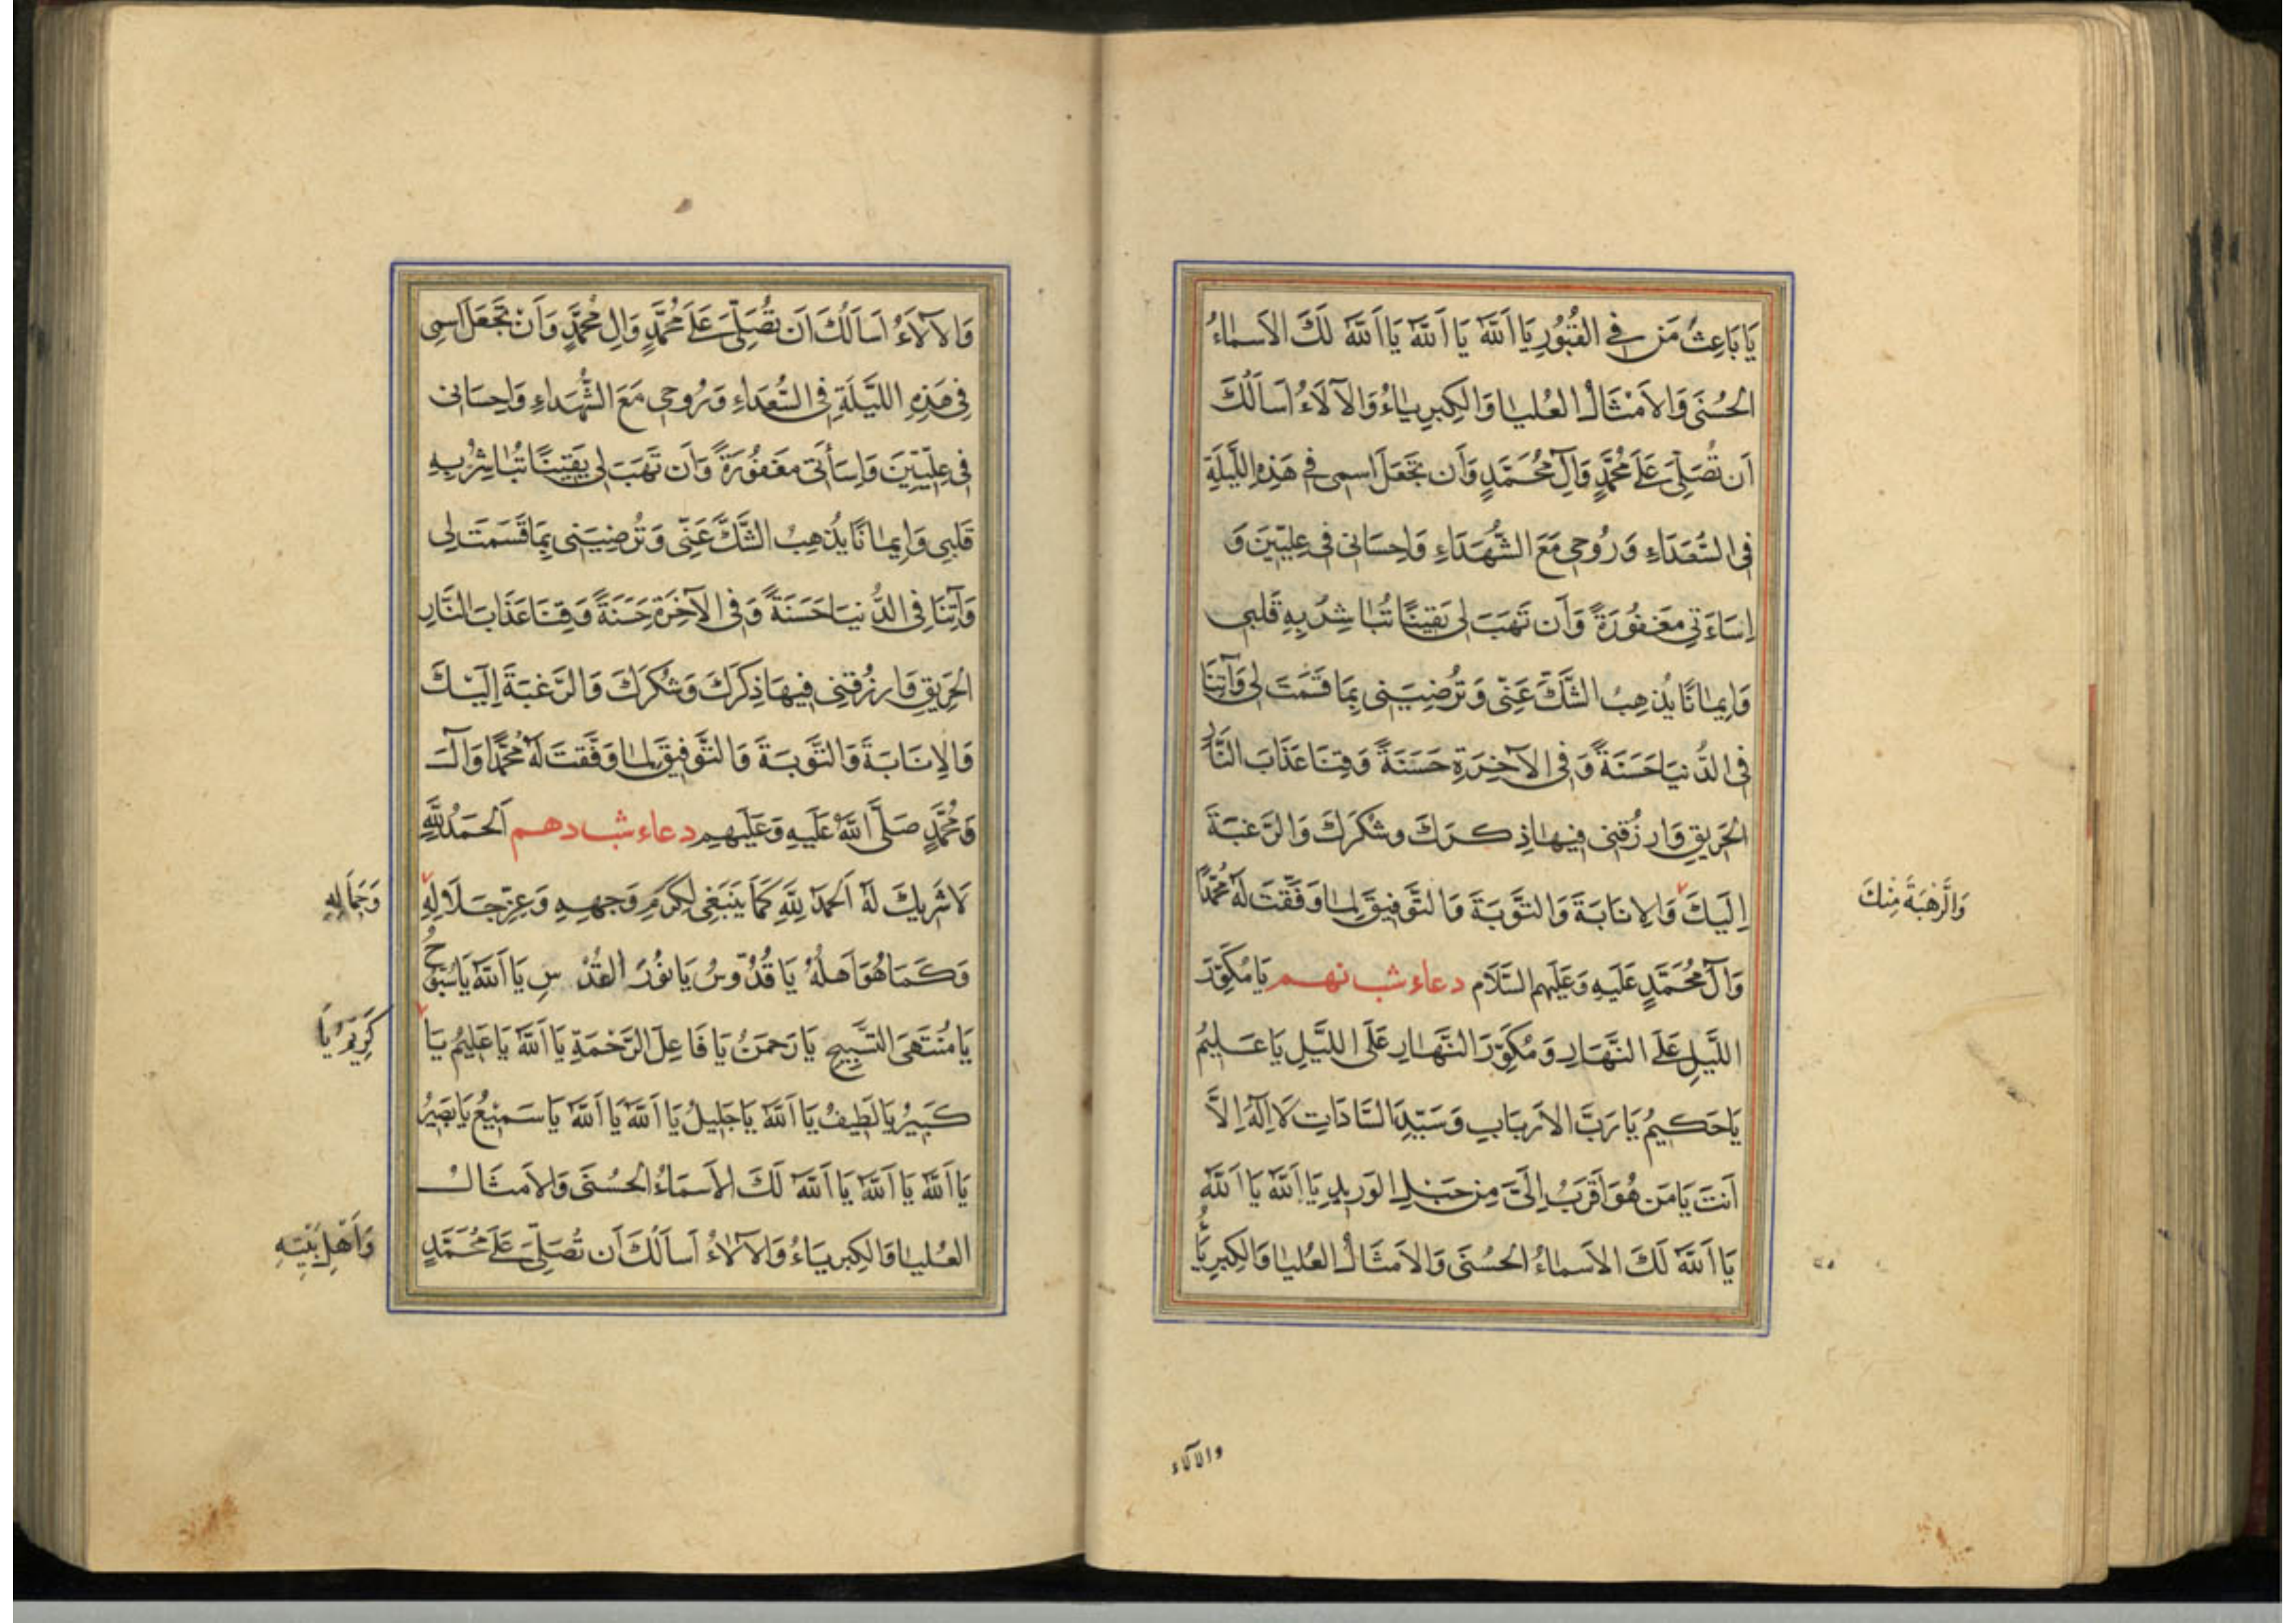 يَا بَاعِثَ مَن فِي القُبُورِ يَا اَللّٰهُ يَا اَللّٰهُ يَا اَللّٰهُ لَكَ الاَسمَاءُ
الحُسنَى وَالاَمثَالُ العُليَا وَالكِبرِيَاءُ وَالآلَاءُ اَساَلُكَ
اَن تُصَلِّىَ عَلَى مُحَمَّدٍ وَآلِ مُحَمَّدٍ وَاَن تَجعَلَ اسمِى فِي هَذِهِ اللَّيلَةِ
فِى السُّعَدَاءِ وَرُوحِى مَعَ الشُّهَدَاءِ وَاِحسَانِى فِى عِلِّيّينَ وَ
اِسَاءَتِي مَغفُورَةً وَاَن تَهَبَ لِى يَقِينًا تُبَاشِرُ بِهِ قَلبِى
وَاِيمَانًا يُذهِبُ الشَّكَّ عَنِّى وَتُرضِيَنِى بِمَا قَسَمتَ لِى وَآتِنَا
فِى الدُّنيَا حَسَنَةً وَفِى الآخِرَةِ حَسَنَةً وَقِنَا عَذَابَ النَّارِ
الحَرِيقِ وَارزُقنِى فِيهَا ذِكرَكَ وشُكرَكَ وَالرَّغبَةَ
اِلَيكَ وَالاِنَابَةَ وَالتَّوبَةَ وَالتَّوفِيقَ لِمَا وَفَّقتَ لَهُ مُحَمَّدًا
وَالرَّهْبَةَ مِنْكَ
وَآلَ مُحَمَّدٍ عَلَيهِ وَعَلَيهِم السَّلَام دعاء شب نهم يَا مُكَوِّرَ
اللَّيلِ عَلَى النَّهَارِ وَمُكَوِّرَ النَّهَارِ عَلَى اللَّيلِ يَا عَلِيمُ
يَا حَكِيمُ يَا رَبَّ الاَربَابِ وَسَيّدَ السَّادَاتِ لَا اِلَهَ اِلَّا
اَنتَ يَا مَن هُوَ اَقرَبُ اِلَىَّ مِن حَبلِ الوَرِيدِ يَا اَللّٰهُ يَا اَللّٰهُ
يَا اَللّٰهُ لَكَ الاَسمَاءُ الحُسنَى وَالاَمثَالُ العُليَا وَالكِبرِيَاءُ
والآلاء
وَالآلَاءُ اَساَلُكَ اَن تُصَلِّىَ عَلَى مُحَمَّدٍ وَالِ مُحَمَّدٍ وَاَن تَجعَلَ اسمِى
فِى هَذِهِ اللَّيلَةِ فِى السُّعَدَاءِ وَرُوحِى مَعَ الشُّهَدَاءِ وَاِحسَانِى
فِى عِلِّيّينَ وَاِسَأتِى مَغفُورَةً وَاَن تَهَبَ لِى يَقِينًا تُبَاشِرُ بِهِ
قَلبِى وَاِيمَانًا يُذهِبُ الشَّكَّ عَنِّى وَتُرضِيَنِى بِمَا قَسَمتَ لِى
وَآتِنَا فِى الدُّنيَا حَسَنَةً وَفِى الآخِرَةِ حَسَنَةً وَقِنَا عَذَابَ النَّارِ
الحَرِيقِ وَارزُقنِى فِيهَا ذِكرَكَ وَشُكرَكَ وَالرَّغبَةَ اِلَيكَ
وَالاِنَابَةَ وَالتَّوبَةَ وَالتَّوفِيقَ لِمَا وَفَّقتَ لَهُ مُحَمَّدًا وَآلَ
وَمُحَمَّدٍ صَلَّى اللّٰهُ عَلَيهِ وَعَلَيهِم دعاء شب دهم اَلحَمدُ لِلّٰهِ
لَا شَرِيكَ لَهُ اَلحَمدُ لِلّٰهِ كَمَا يَنبَغِى لِكَرَمِ وَجهِهِ وَعِزِّ جَلَالِهِ
وَجَمَالِهِ
وَكَمَا هُوَ اَهلُهُ يَا قُدُّوسُ يَا نُورَ القُدسِ يَا اَللّٰهُ يَا سُبُّوحُ
يَا مُنتَهَى التَّسبِيحِ يَا رَحمَنُ يَا فَاعِلَ الرَّحمَةِ يَا اَللّٰهُ يَا عَلِيمُ يَا
كَرِيمُ يَا
كَبِيرُ يَا لَطِيفُ يَا اَللّٰهُ يَا جَلِيلُ يَا اَللّٰهُ يَا اَللّٰهُ يَا سَمِيعُ يَا بَصِيرُ
يَا اَللّٰهُ يَا اَللّٰهُ يَا اَللّٰهُ لَكَ الاَسمَاءُ الحُسنَى وَالاَمثَالُ
العُليَا وَالكِبرِيَاءُ وَالآلَاءُ اَساَلُكَ اَن تُصَلِّىَ عَلَى مُحَمَّدٍ
وَاَهْلِ بَيْتِهِ